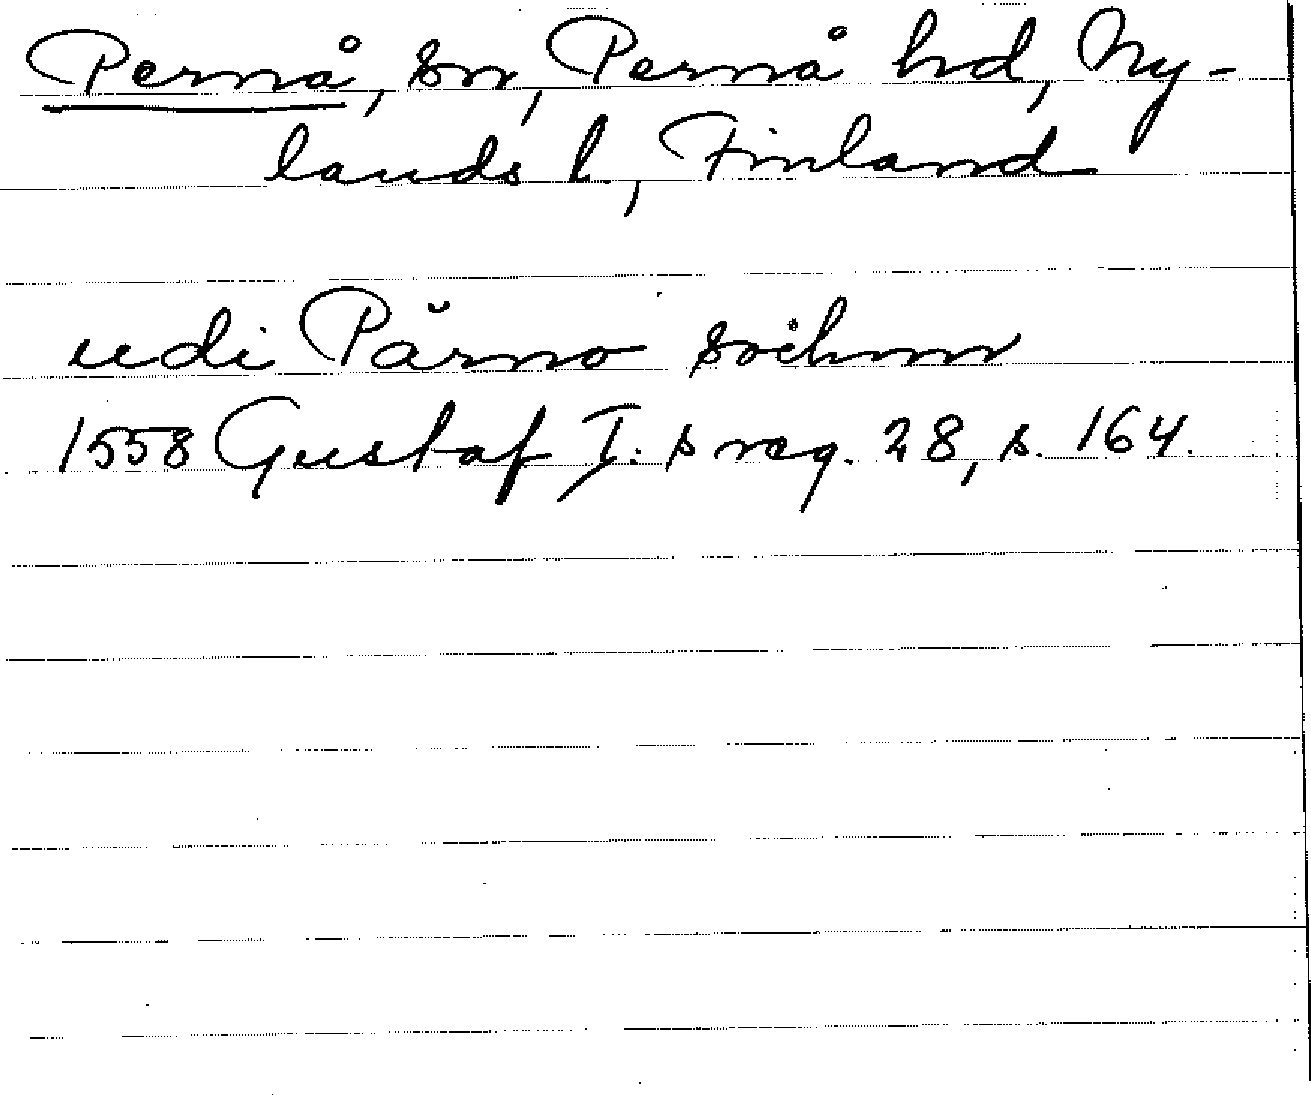 Pernå, sn, Pernå hd, Ny-
lands l., Finland
udi Pärno sochnn
1558 Gustaf I:s reg. 28, s. 164.